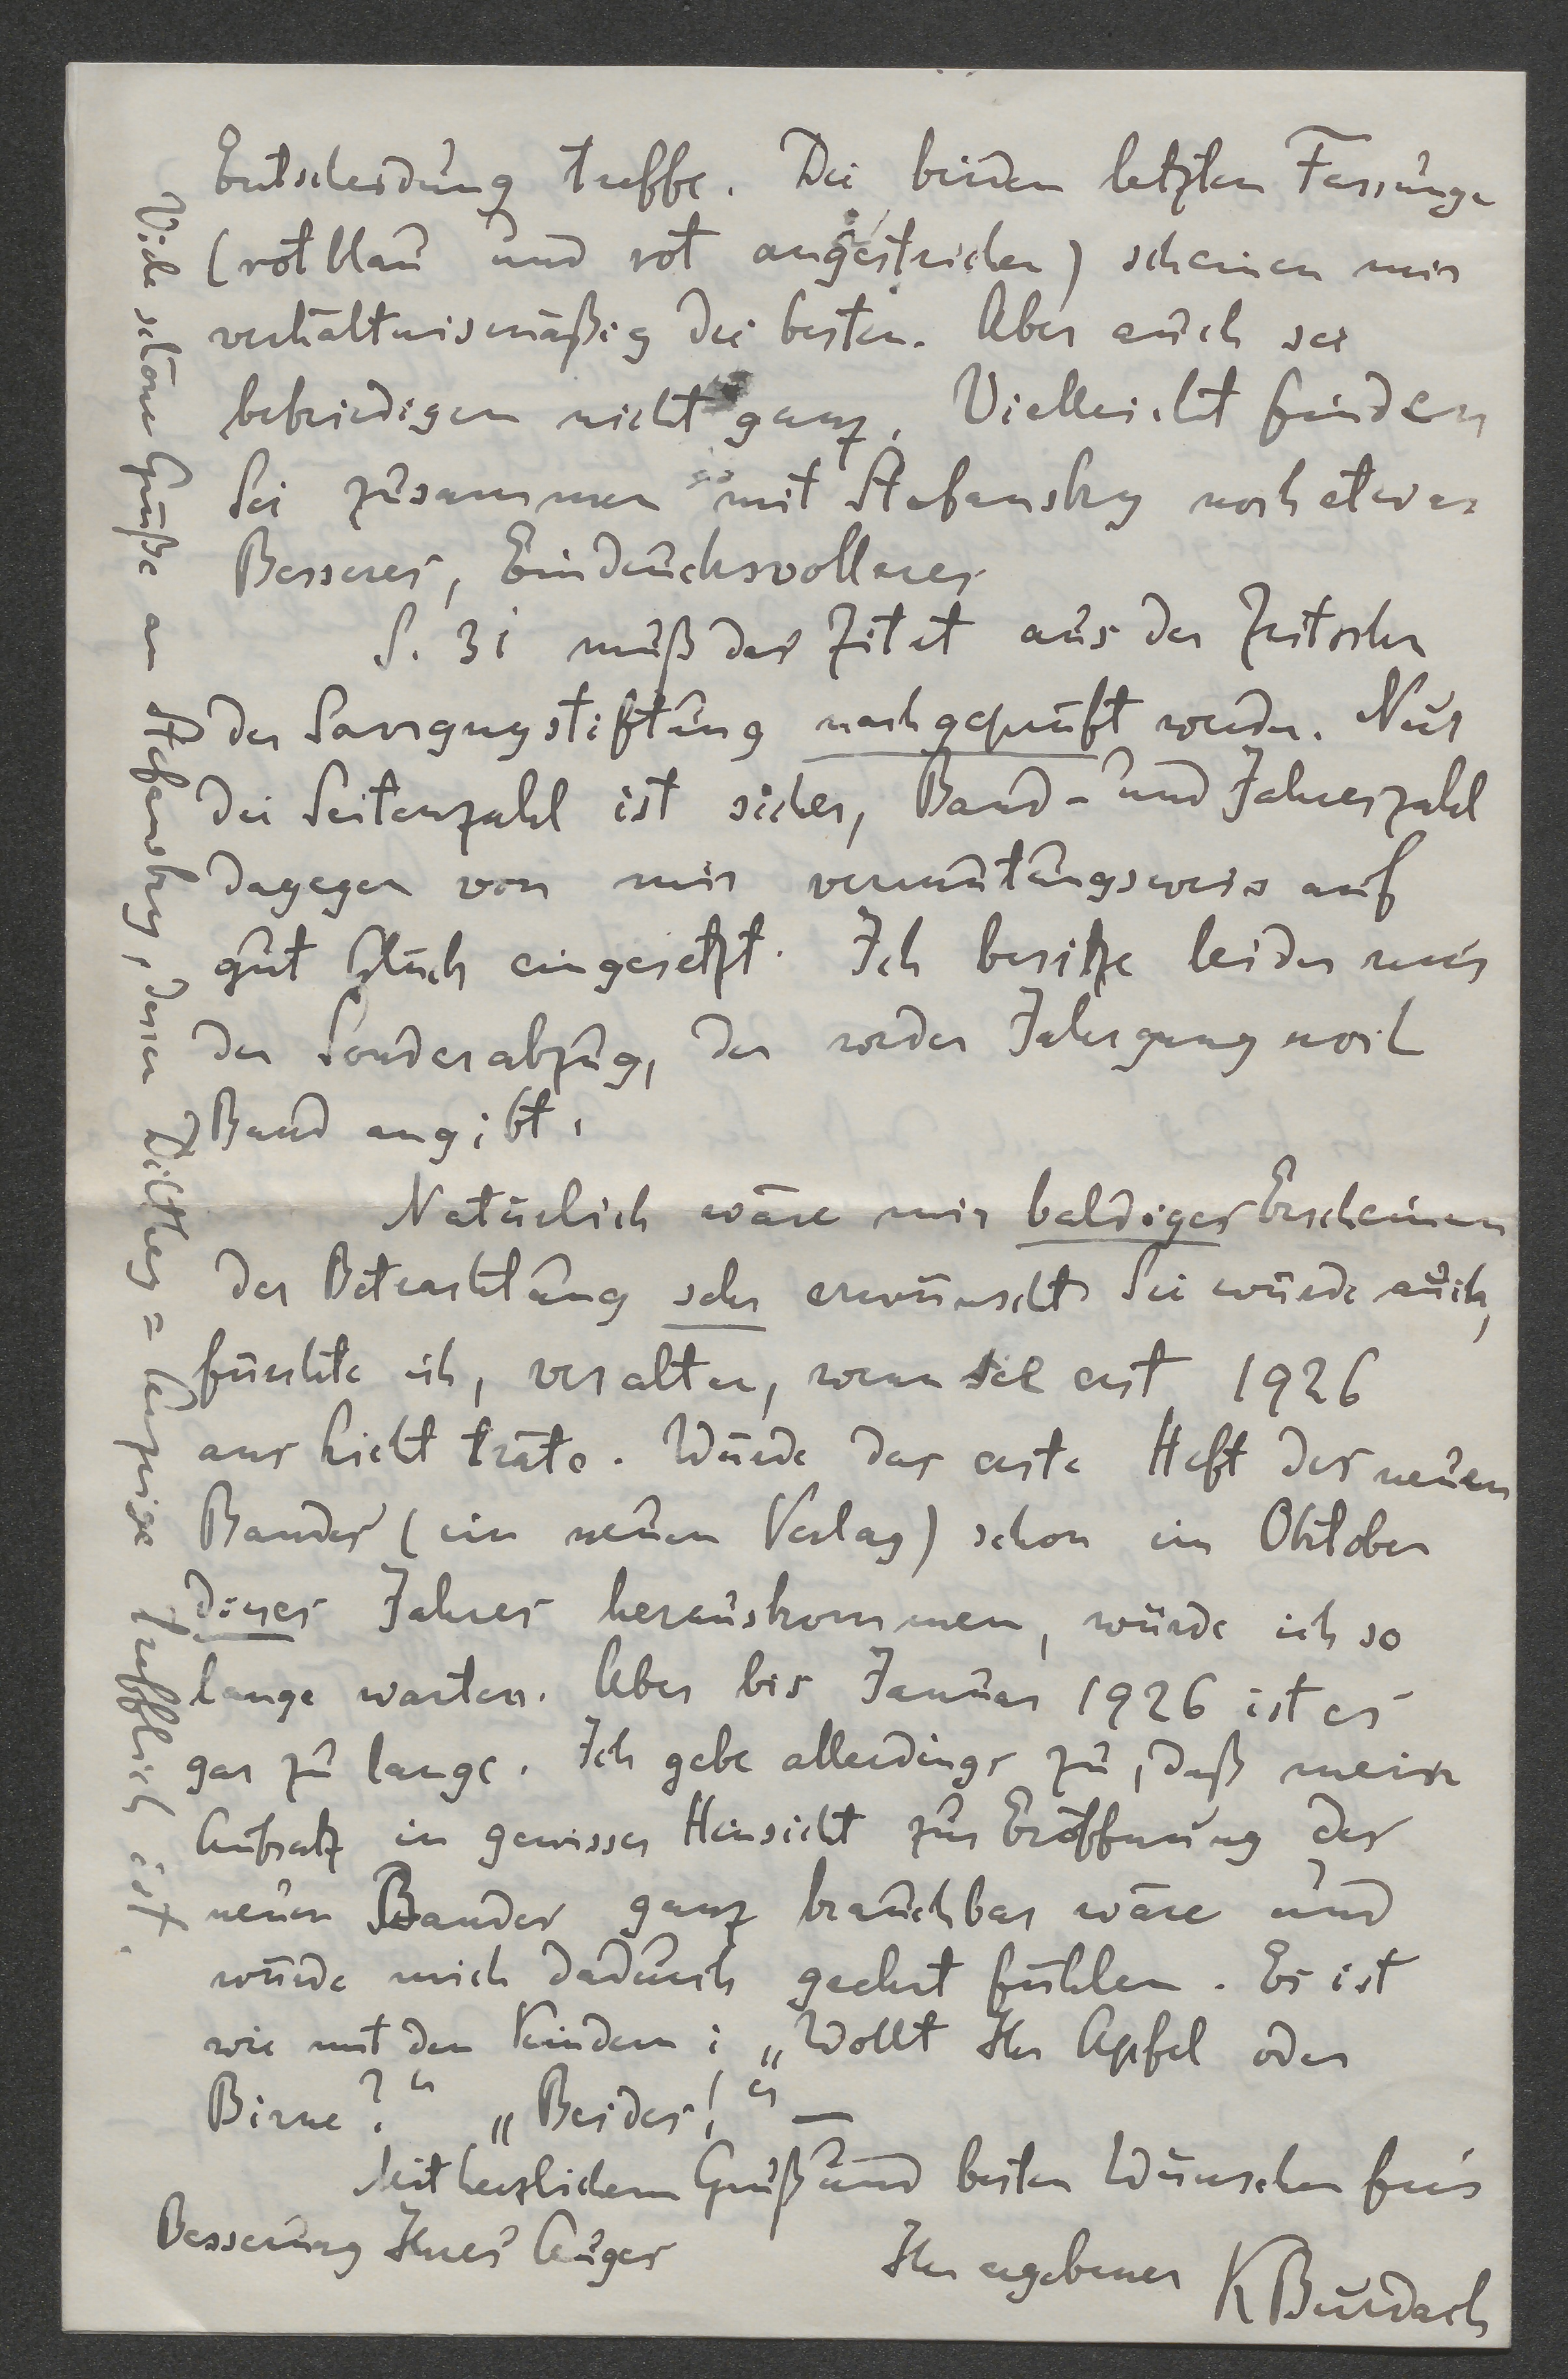 Entscheidung treffe. Die beiden letzten Fassungen
(rotblau und rot angestrichen) scheinen mir
verhältnismäßig die besten. Aber auch sie
befriedigen nicht ganz. Vielleicht finden
Sie zusammen mit Stefansky noch etwas
Besseres, Eindrucksvolleres.
S. 31 muß das Zitat aus der Zeitschr
der Savignystiftung nachgeprüft werden. Nur
die Seitenzahl ist sicher, Band- und Jahreszahl
dagegen von mir vermutungsweise auf
gut Glück eingesetzt. Ich besitze leider nur
den Sonderabzug, der weder Jahrgang noch
Band angibt.
Natürlich wäre mir baldiges Erscheinen
der Betrachtung sehr erwünscht. Sie würde auch,
fürchte ich, veralten, wenn sie erst 1926
ans Licht träte. Würde das erste Heft des neuen
Bandes (im neuen Verlag) schon im Oktober
dieses Jahres herauskommen, würde ich so
lange warten. Aber bis Januar 1926 ist es
gar zu lange. Ich gebe allerdings zu, daß mein
Aufsatz in gewisser Hinsicht zur Eröffnung des
neuen Bandes ganz brauchbar wäre und
würde mich dadurch geehrt fühlen. Es ist
wie mit den Kindern: „Wollt Ihr Apfel oder
Birne?“ „Beides!“ —
Mit herzlichem Gruß und besten Wünschen für
Besserung Ihres Auges
Ihr ergebener KBurdach
Viele schöne Grüße an Stefansky, dessen Dilthey=Anzeige trefflich ist.